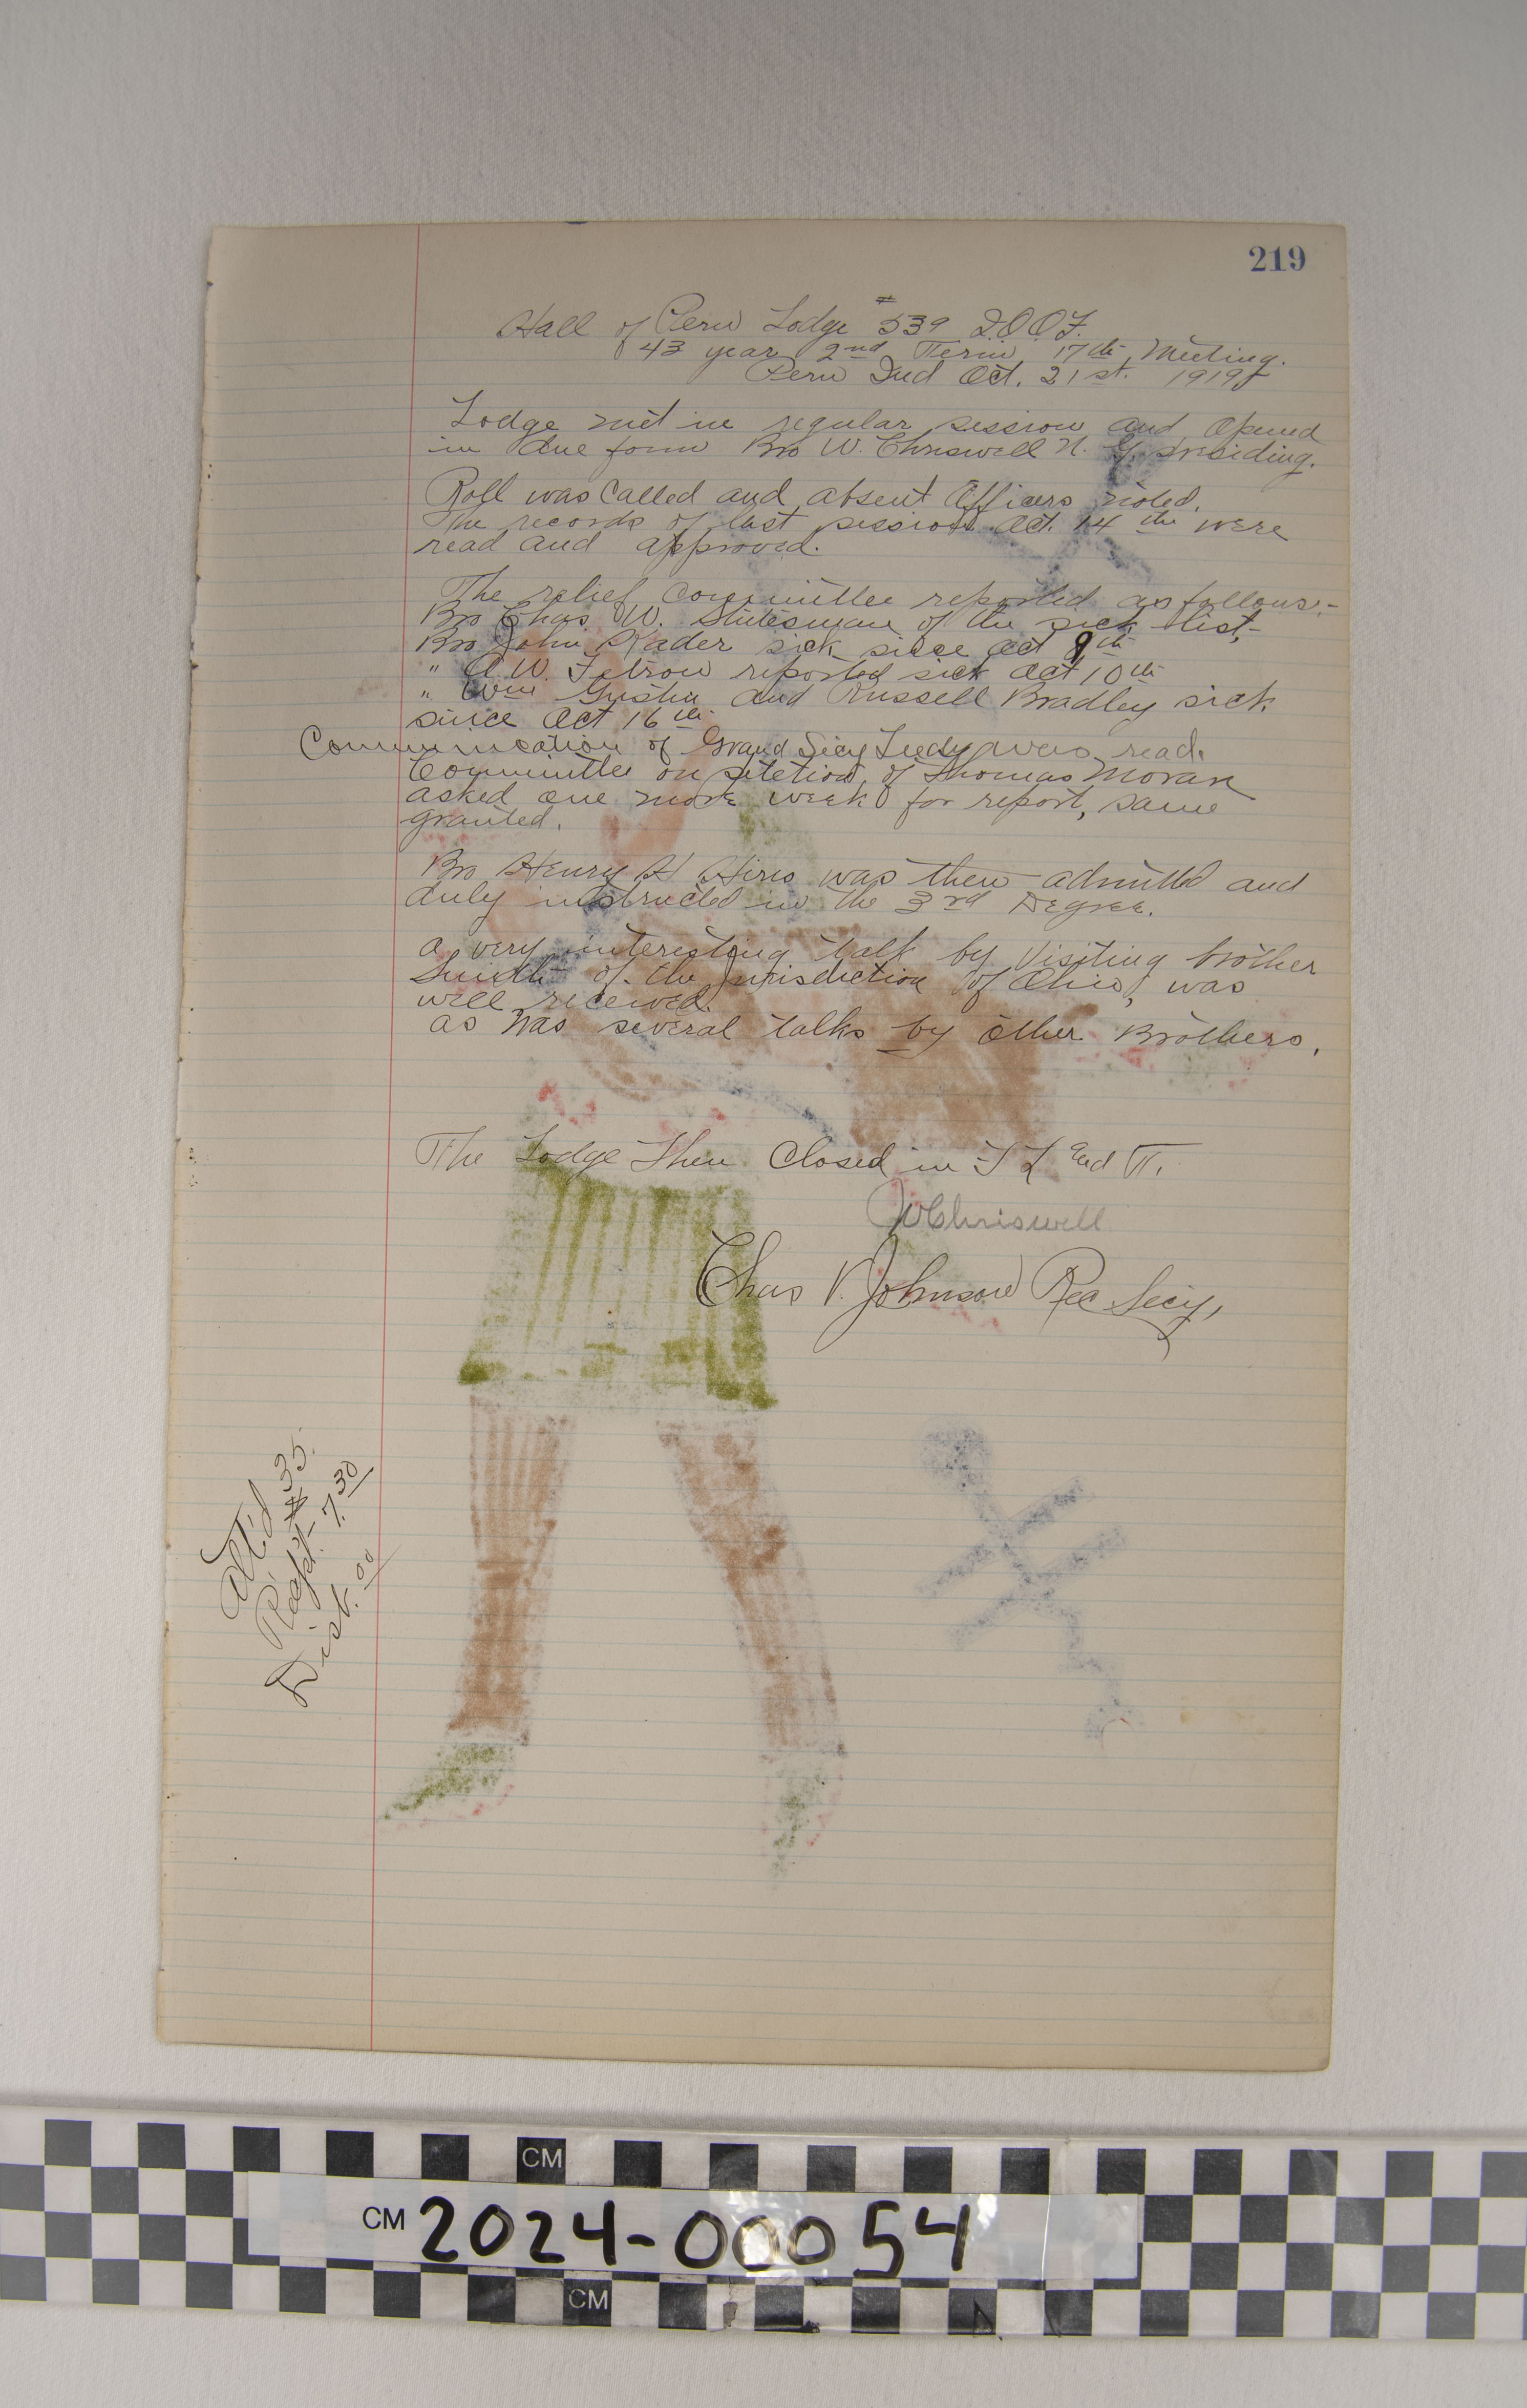 219
Hall of Peru Lodge # 539 I.O.O.F.
43 year 2nd Term 17th Meeting.
Peru Ind Oct. 21st. 1919
Lodge met in regular session and opened
in due form Bro W. Chriswell N. G. presiding.
Roll was called and absent Officers noted.
The records of last session Oct. 14th were
read and approved.
The relief committee reported as follows:-
Bro Chas. W. Stutesman of the sick list,-
Bro John Rader sick since Oct 9th
" A. W. Fetrow reported sick Oct 10th
" Wm and Russell Bradley sick
since Oct 16th.
Communication of Grand Secy Leedy was read.
Committee on petetion of Thomas Moran
asked one more week for report, same
granted.
Bro Henry H Hires was then admitted and
duly instructed in the 3rd Degree.
a very interesting talk by Visiting brother
Smith of the jurisdiction of Ohio, was
well received.
as was several talks by other Brothers.
The Lodge then Closed in F L and T.
W Chriswell
Chas V. Johnson Rec Secy,
Att'd 35.
Rcpt. $ 7.30
Disb. 00
CM
CM 2024-00054
CM